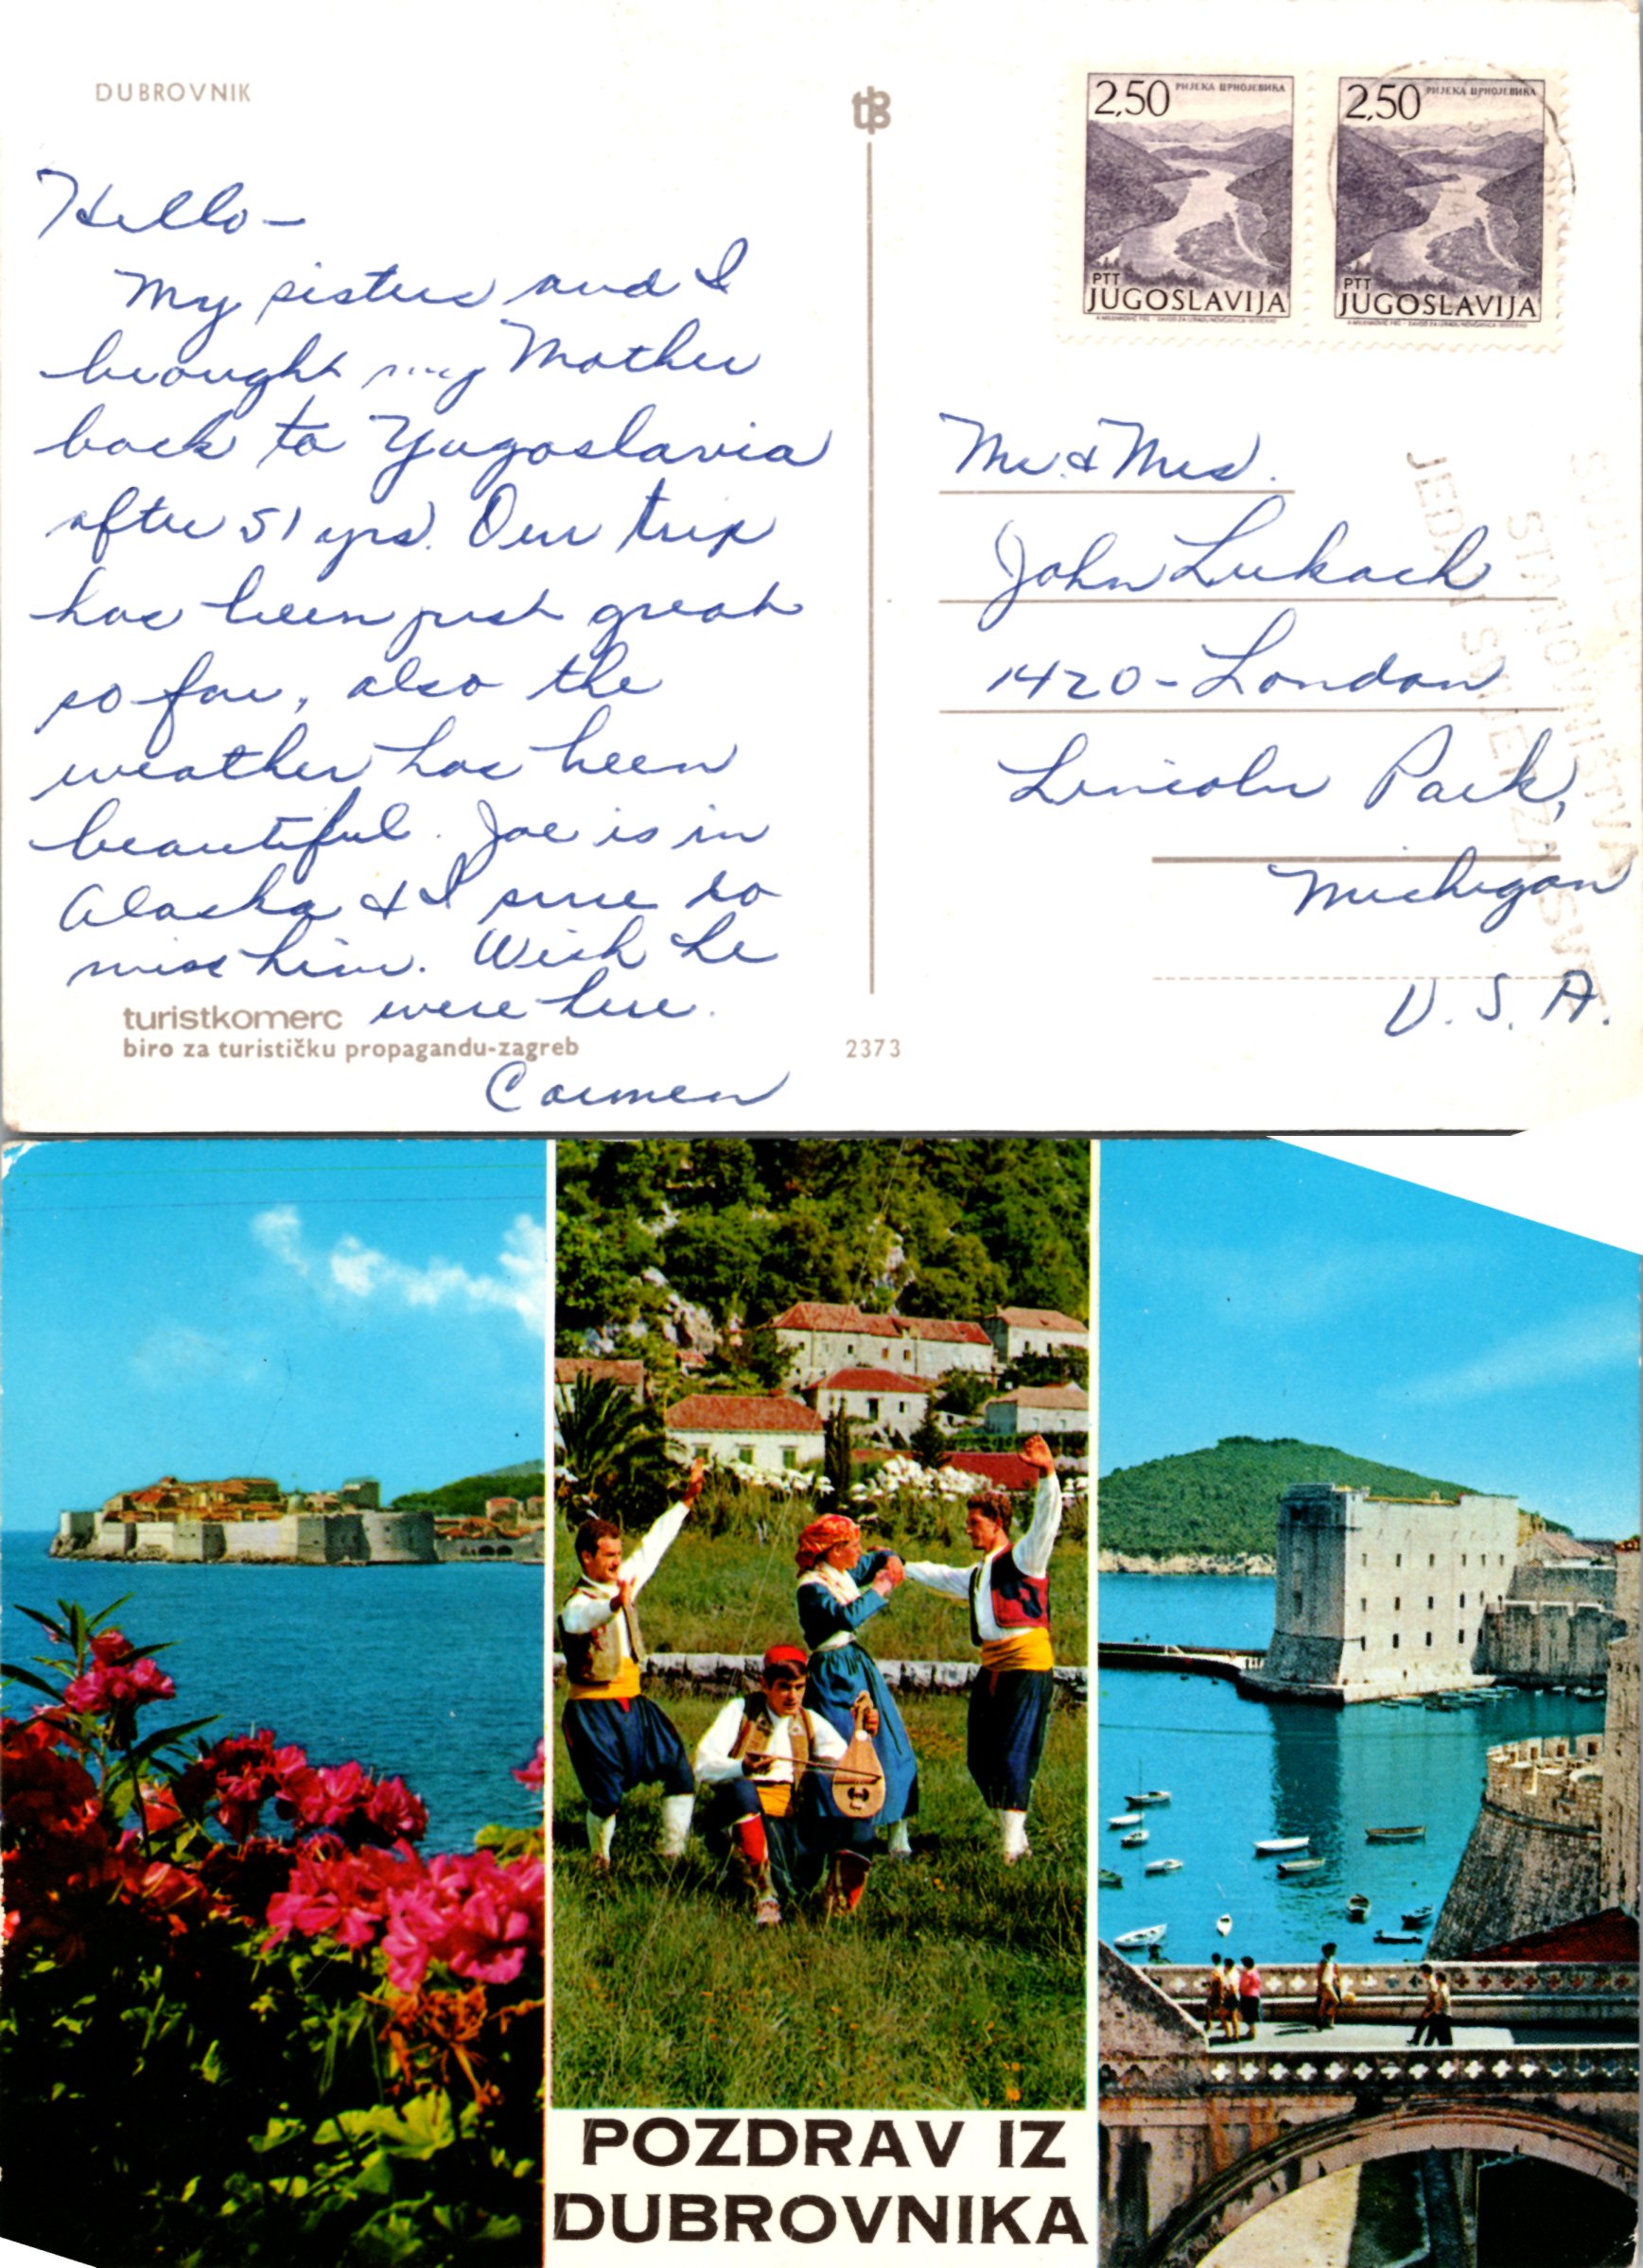 DUBROVNIK
Hello-
My sisters and I
brought my Mother
back to Yugoslavia
after 51 yrs. Our trip
has been just great
so far, also the
weather has been
beautiful. Joe is in
Alaska & I sure do
miss him. Wish he
were here.
Carmen
turistkomerc
biro za turističku propagandu-zagreb
2373
2,50 РИЈЕКА ЦРНОЈЕВИЋА
PTT
JUGOSLAVIJA
2,50 РИЈЕКА ЦРНОЈЕВИЋА
PTT
JUGOSLAVIJA
Mr. & Mrs.
John Lukach
1420-London
Lincoln Park,
Michigan
U.S.A.
POZDRAV IZ
DUBROVNIKA